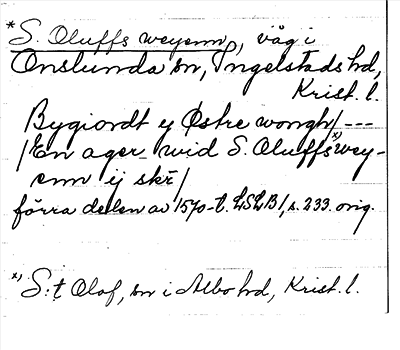 *S. Oluffs weyenn, väg i
Onslunda sn, Ingelstads hd,
Krist. l.
Bygiordt ij Østre wongh/ ---
/En ager wid S. Oluffs*) wey-
enn ij skr/
förra delen av 1570-t. LSLB1, s. 233. orig.
*) S:t Olof, sn i Albo hd, Krist. l.